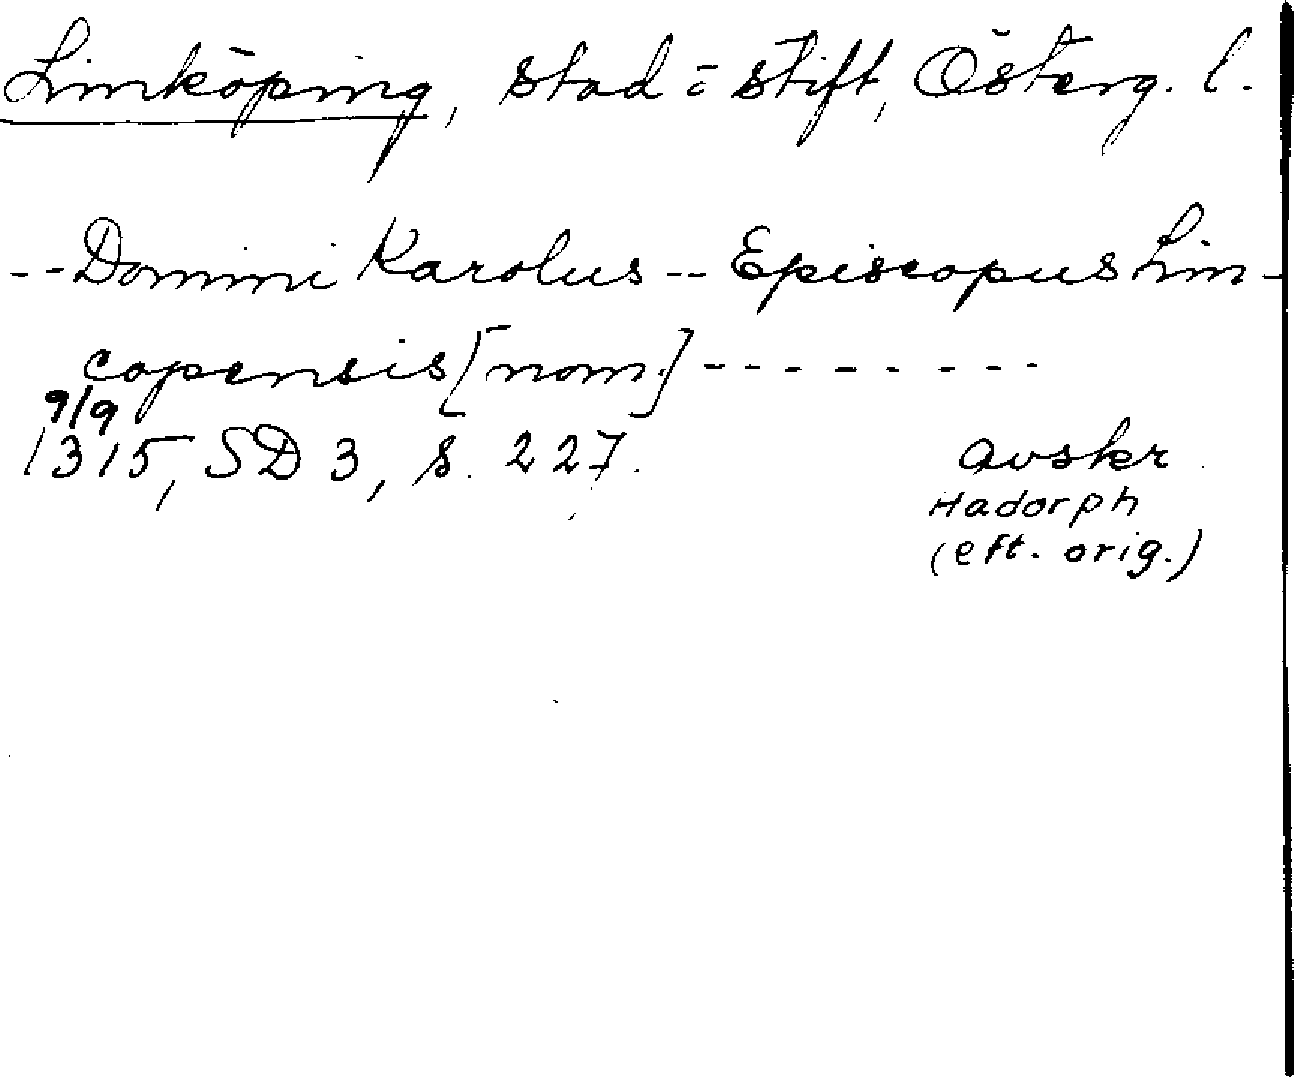 Linköping, stad = stift, Österg. l.
-- Domini Karolus -- Episcopus Lin-
copensis [nom.] - - - - - - - -
9/9
1315, SD 3, s. 227.
avskr.
Hadorph
(eft. orig.)